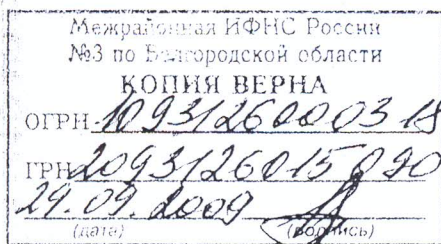 Межрайонная ИФНС России
№3 по Белгородской области
КОПИЯ ВЕРНА
ОГРН 1093126000318
ГРН 2093126015090
29.09.2009
(дата) (подпись)